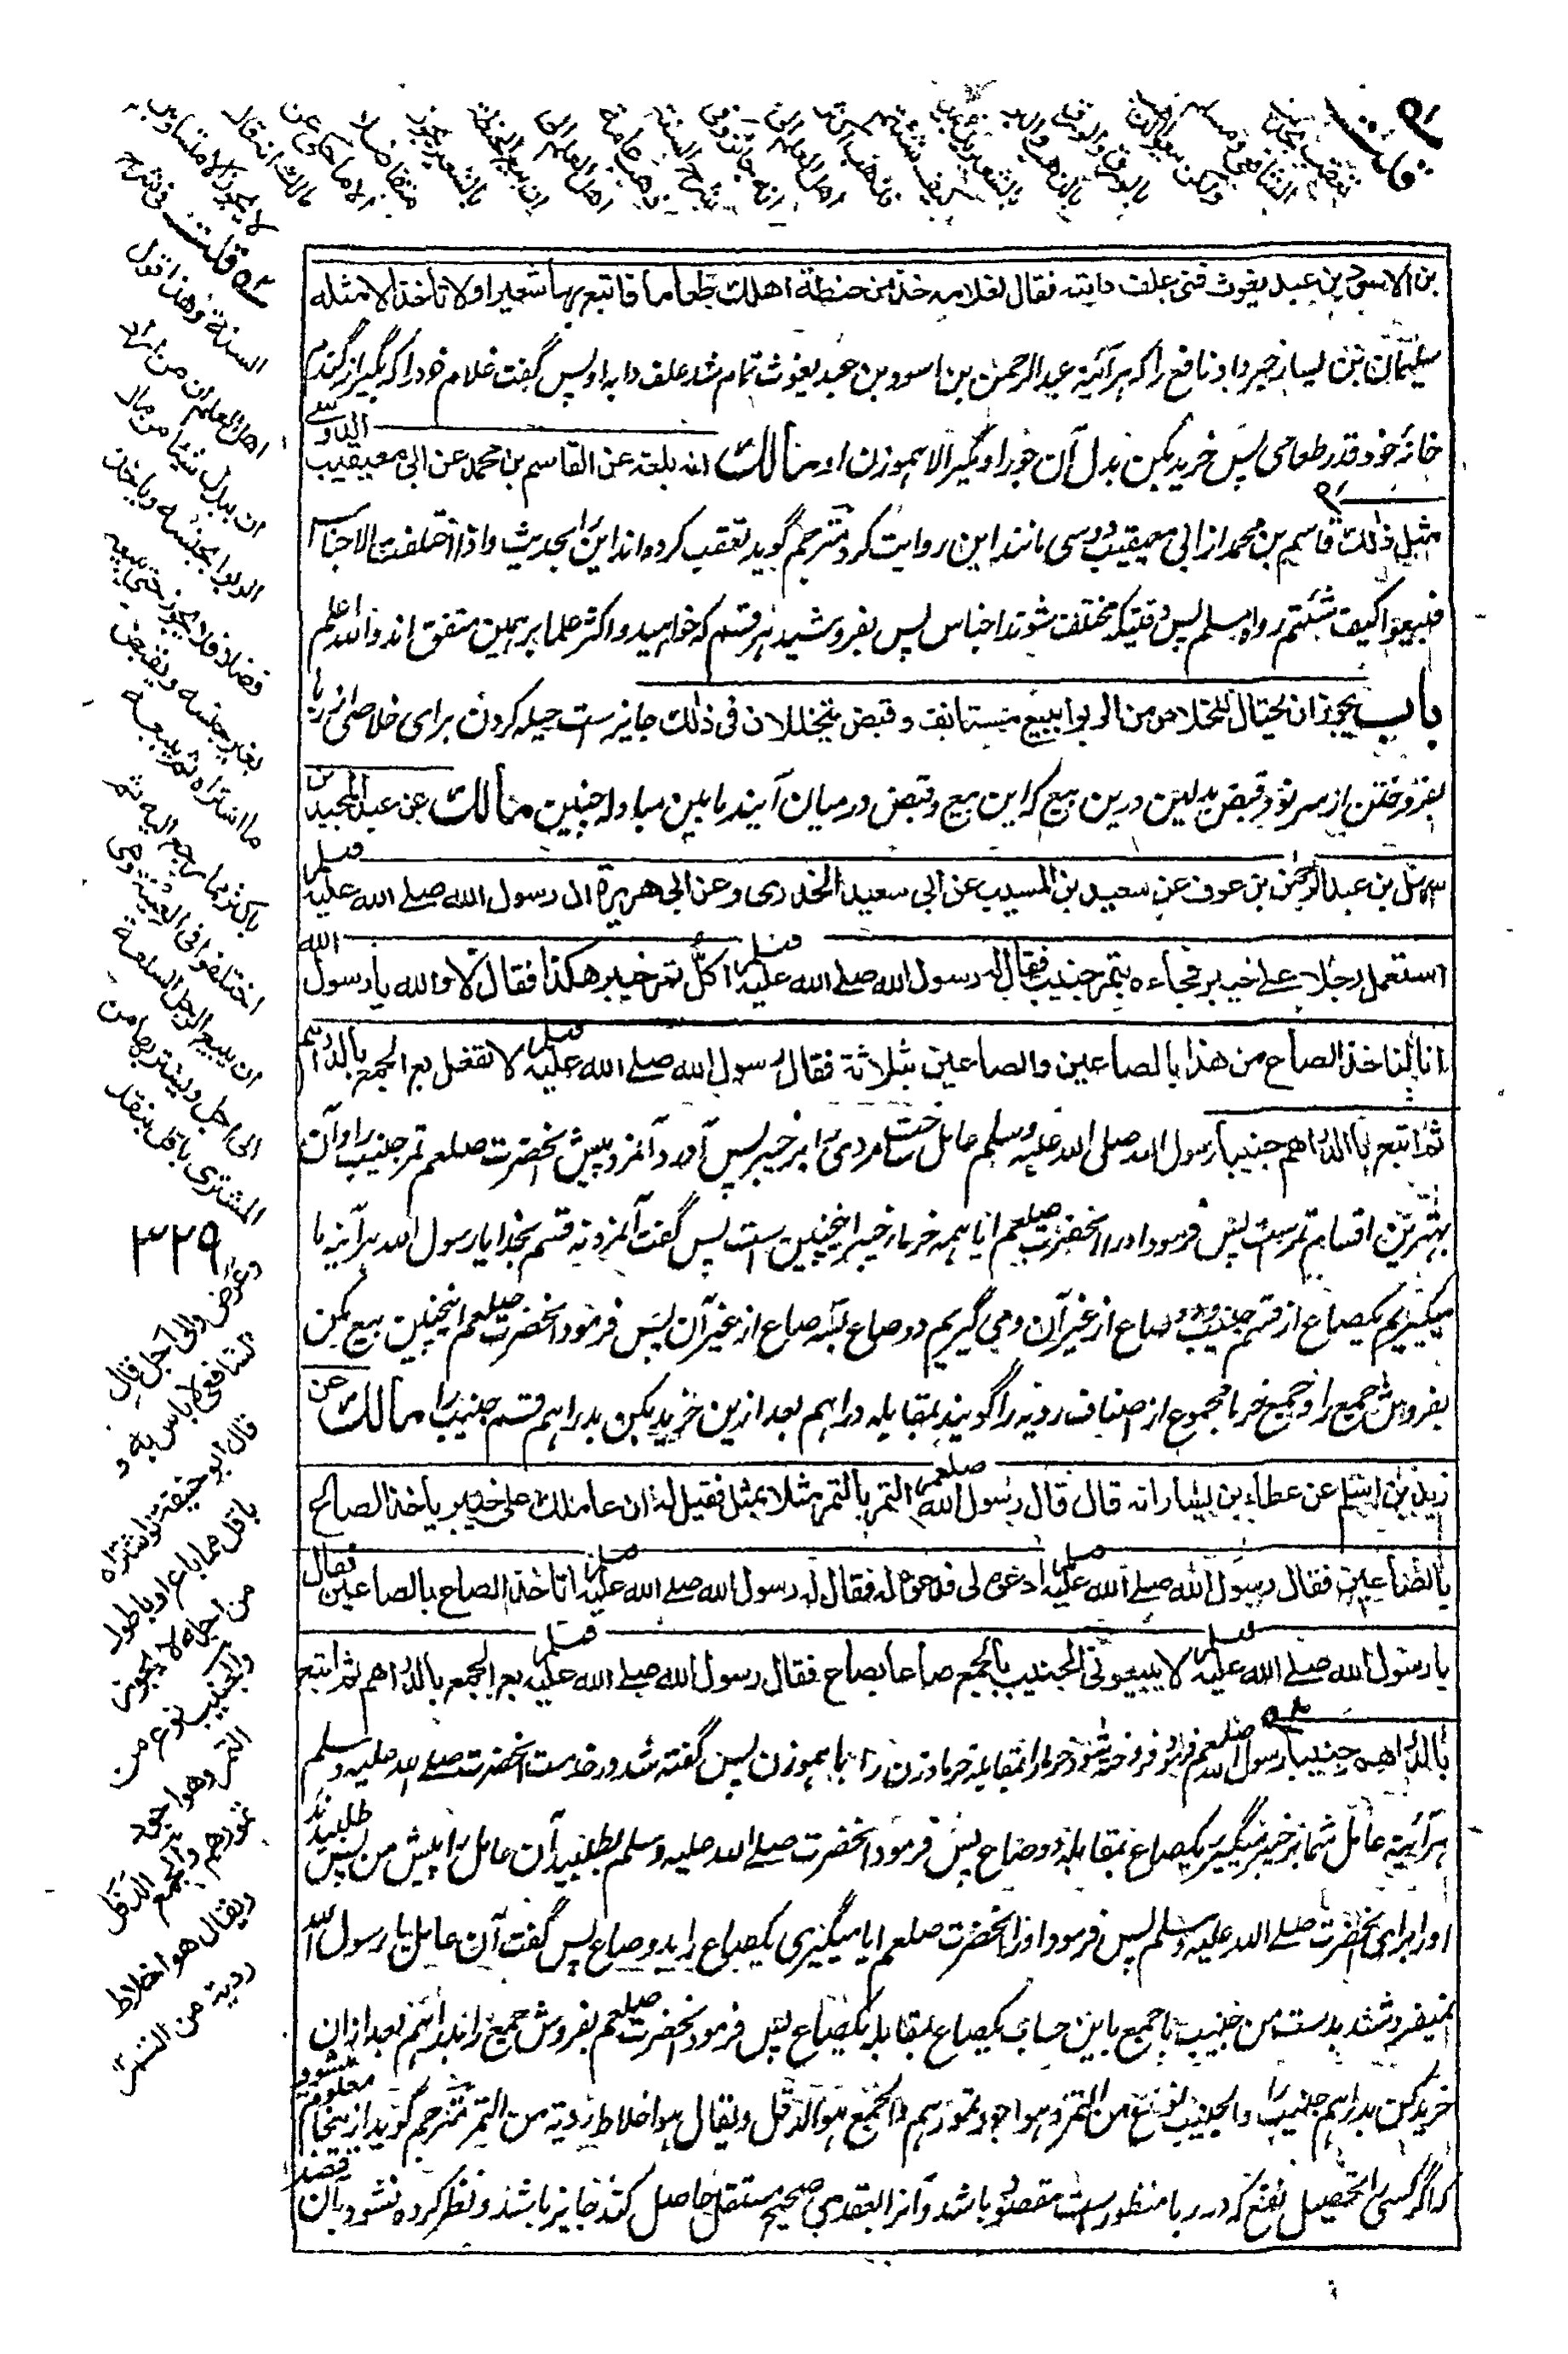 بن الاسود بن عبد يغوث فنى علف دابته فقال لغلامه خذ من حنطة اهلك طعاما فابتع بها شعيرا ولا تاخذ الا مثله
سلیمان بن یسار خبر داد نافع را که هرآئینه عبد الرحمن بن اسود بن عبد یغوث تمام شد علف دابه او پس گفت غلام خود را که بگیر از گندم
خانهٔ خود قدر طعامی پس خرید بکن بدل آن جو را و مگیر الا هموزن او مالك انه بلغه عن القاسم بن محمد عن ابی معیقیب الدوسے
مثل ذلك قاسم بن محمد از ابی معیقیب دوسی مانند این روایت کرد مترجم گوید تعقب کرده اند این را بحدیث واذا اختلفت الاجناس
فبیعوا کیف شئتم رواه مسلم پس وقتیکه مختلف شوند اجناس پس بفروشید هر قسم که خواهید و اکثر علما بر همین متفق اند والله اعلم
باب یجوز ان یحتال للخلاص من الربوا ببیع مستانف وقبض یتخللان فی ذلك جایز ست حیله کردن برای خلاصی از ربا
بفروختن از سر نو و قبض بدلین درین بیع که این بیع و قبض در میان آیند مابین مبادله جنسین مالك عن عبد المجید بن
سهیل بن عبد الرحمن بن عوف عن سعید بن المسیب عن ابی سعید الخدری وعن ابی هریرة ان رسول الله صلے الله علیه وسلم
استعمل رجلا علے خیبر فجاءه بتمر جنیب فقال له رسول الله صلے الله علیه وسلم اکل تمر خیبر هکذا فقال لا والله یا رسول الله
انا لناخذ الصاع من هذا بالصاعین والصاعین بثلاثة فقال رسول الله صلے الله علیه وسلم لا تفعل بع الجمع بالدراهم
ثم ابتع بالدراهم جنیبا رسول الله صلی الله علیه وسلم عامل ساخت مردی را بر خیبر پس آورد آنمرد پیش آنحضرت صلعم تمر جنیب را و آن
بهترین اقسام تمر ست پس فرمود او را آنحضرت صلعم آیا همه خرمای خیبر اینچنین است پس گفت آنمرد نه قسم بخدا یا رسول الله هرآئینه ما
میگیریم یکصاع از قسم جنیب بدو صاع از غیر آن و می گیریم دو صاع بسه صاع از غیر آن پس فرمود آنحضرت صلعم اینچنین بیع مکن
بفروش جمیع را و جمیع خرما مجموع از اصناف ردیه را گویند بمقابله دراهم بعد ازین خرید بکن بدراهم قسم جنیب را مالك عن
زید بن اسلم عن عطاء بن یسار انه قال قال رسول الله صلعم التمر بالتمر مثلا بمثل فقیل له ان عاملك على خیبر یاخذ الصاع
بالصاعین فقال رسول الله صلے الله علیه وسلم ادعوه لی فدعوه له فقال له رسول الله صلے الله علیه وسلم اتاخذ الصاع بالصاعین فقال
یا رسول الله صلے الله علیه وسلم لا یبیعونی الجنیب بالجمع صاعا بصاع فقال رسول الله صلے الله علیه وسلم بع الجمع بالدراهم ثم ابتع
بالدراهم جنیبا رسول الله صلعم فرمود فروخته شود خرما را بمقابله خرما وزن را با هموزن پس گفته شد در خدمت آنحضرت صلے الله علیه وسلم
هرآئینه عامل شما بر خیبر میگیرد یکصاع بمقابله دو صاع پس فرمود آنحضرت صلے الله علیه وسلم بطلبید آن عامل را پیش من پس طلبیدند
او را برای آنحضرت صلے الله علیه وسلم پس فرمود او را آنحضرت صلعم آیا میگیری یکصاع را بدو صاع پس گفت آن عامل یا رسول الله
نمیفروشند بدست من جنیب با جمیع باین حساب یکصاع بمقابله یکصاع پس فرمود آنحضرت صلعم بفروش جمیع را بدراهم بعد ازان
خرید کن بدراهم جنیب را والجنیب نوع من التمر وهو اجود تمورهم والجمع هو الدقل ویقال هو اخلاط ردیة من التمر مترجم گوید از ینجا معلوم میشود
که اگر کسی را تحصیل نفع که در ربا منظور ست مقصود باشد و آنرا بعقد می صحیح مستقل حاصل کند جایز باشد و نظر کرده نشود بآن قصد
قلت
لا يجوز الا متساويين
قلت فى شرح
السنة وهذا قول
اهل العلم ان من اراد
ان يبدل شيئا من مال
الربوا بجنسه وياخذ
فضلا فلا يجوز حتى يبيعه
بغير جنسه ويقبض
ما اشتراه ثم يبيعه
باكثر مما رجع اليه ثم
اختلفوا فى العينة وهى
ان يبيع الرجل السلعة
الى اجل ويشتريها من
المشترى باقل بنقد
۳۲۹
وعرض والى اجل قال
الشافعى لا باس به و
قال ابو حنيفة لو اشتراه
باقل مما باع او باطول
من اجله لا يجوز
والجنيب نوع من
التمر وهو اجود
تمورهم والجمع الدقل
ويقال هو اخلاط
ردية من التمر